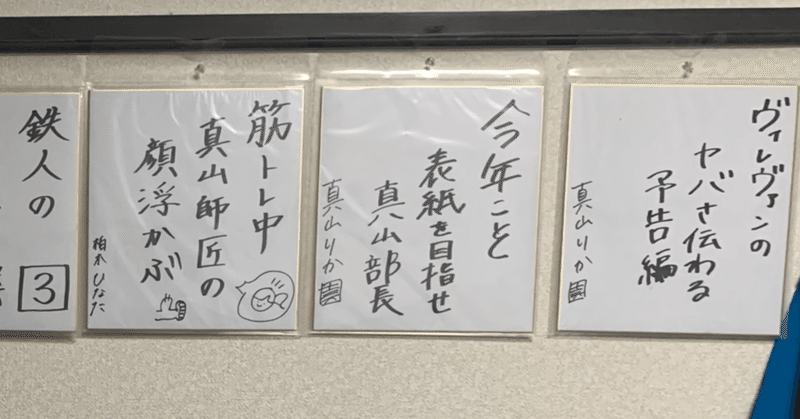 ヴィレヴァンの
ヤバさ伝わる
予告編
真山りか
今年こと
表紙を目指せ
真山部長
真山りか
筋トレ中
真山師匠の
顔浮かぶ
柏木ひなた
鉄人の
3